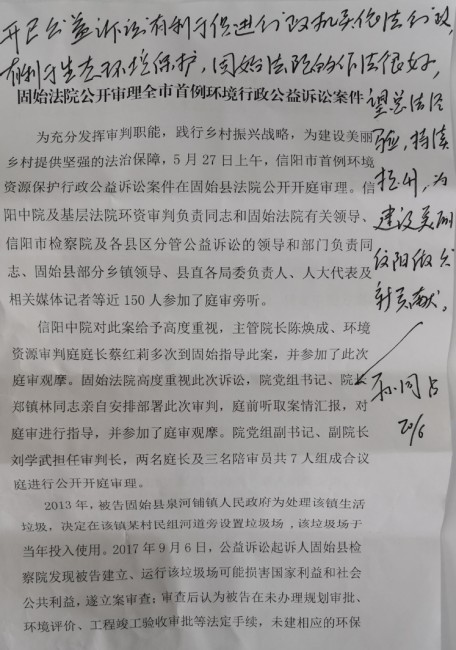 开已公益诉讼有利于促进行政机关依法行政,
有利于生态环境保护,固始法院的作法很好,
望总结经
验,持续
推进,为
建设美丽
信阳做出
新贡献。
20/6
固始法院公开审理全市首例环境行政公益诉讼案件
为充分发挥审判职能,践行乡村振兴战略,为建设美丽
乡村提供坚强的法治保障,5月27日上午,信阳市首例环境
资源保护行政公益诉讼案件在固始县法院公开开庭审理。信
阳中院及基层法院环资审判负责同志和固始法院有关领导、
信阳市检察院及各县区分管公益诉讼的领导和部门负责同
志、固始县部分乡镇领导、县直各局委负责人、人大代表及
相关媒体记者等近150人参加了庭审旁听。
信阳中院对此案给予高度重视,主管院长陈焕成、环境
资源审判庭庭长蔡红莉多次到固始指导此案,并参加了此次
庭审观摩。固始法院高度重视此次诉讼,院党组书记、院长
郑镇林同志亲自安排部署此次审判,庭前听取案情汇报,对
庭审进行指导,并参加了庭审观摩。院党组副书记、副院长
刘学武担任审判长,两名庭长及三名陪审员共7人组成合议
庭进行公开开庭审理。
2013年,被告固始县泉河铺镇人民政府为处理该镇生活
垃圾,决定在该镇某村民组河道旁设置垃圾场,该垃圾场于
当年投入使用。2017年9月6日,公益诉讼起诉人固始县检
察院发现被告建立、运行该垃圾场可能损害国家利益和社会
公共利益,遂立案审查;审查后认为被告在未办理规划审批、
环境评价、工程竣工验收审批等法定手续,未建相应的环保